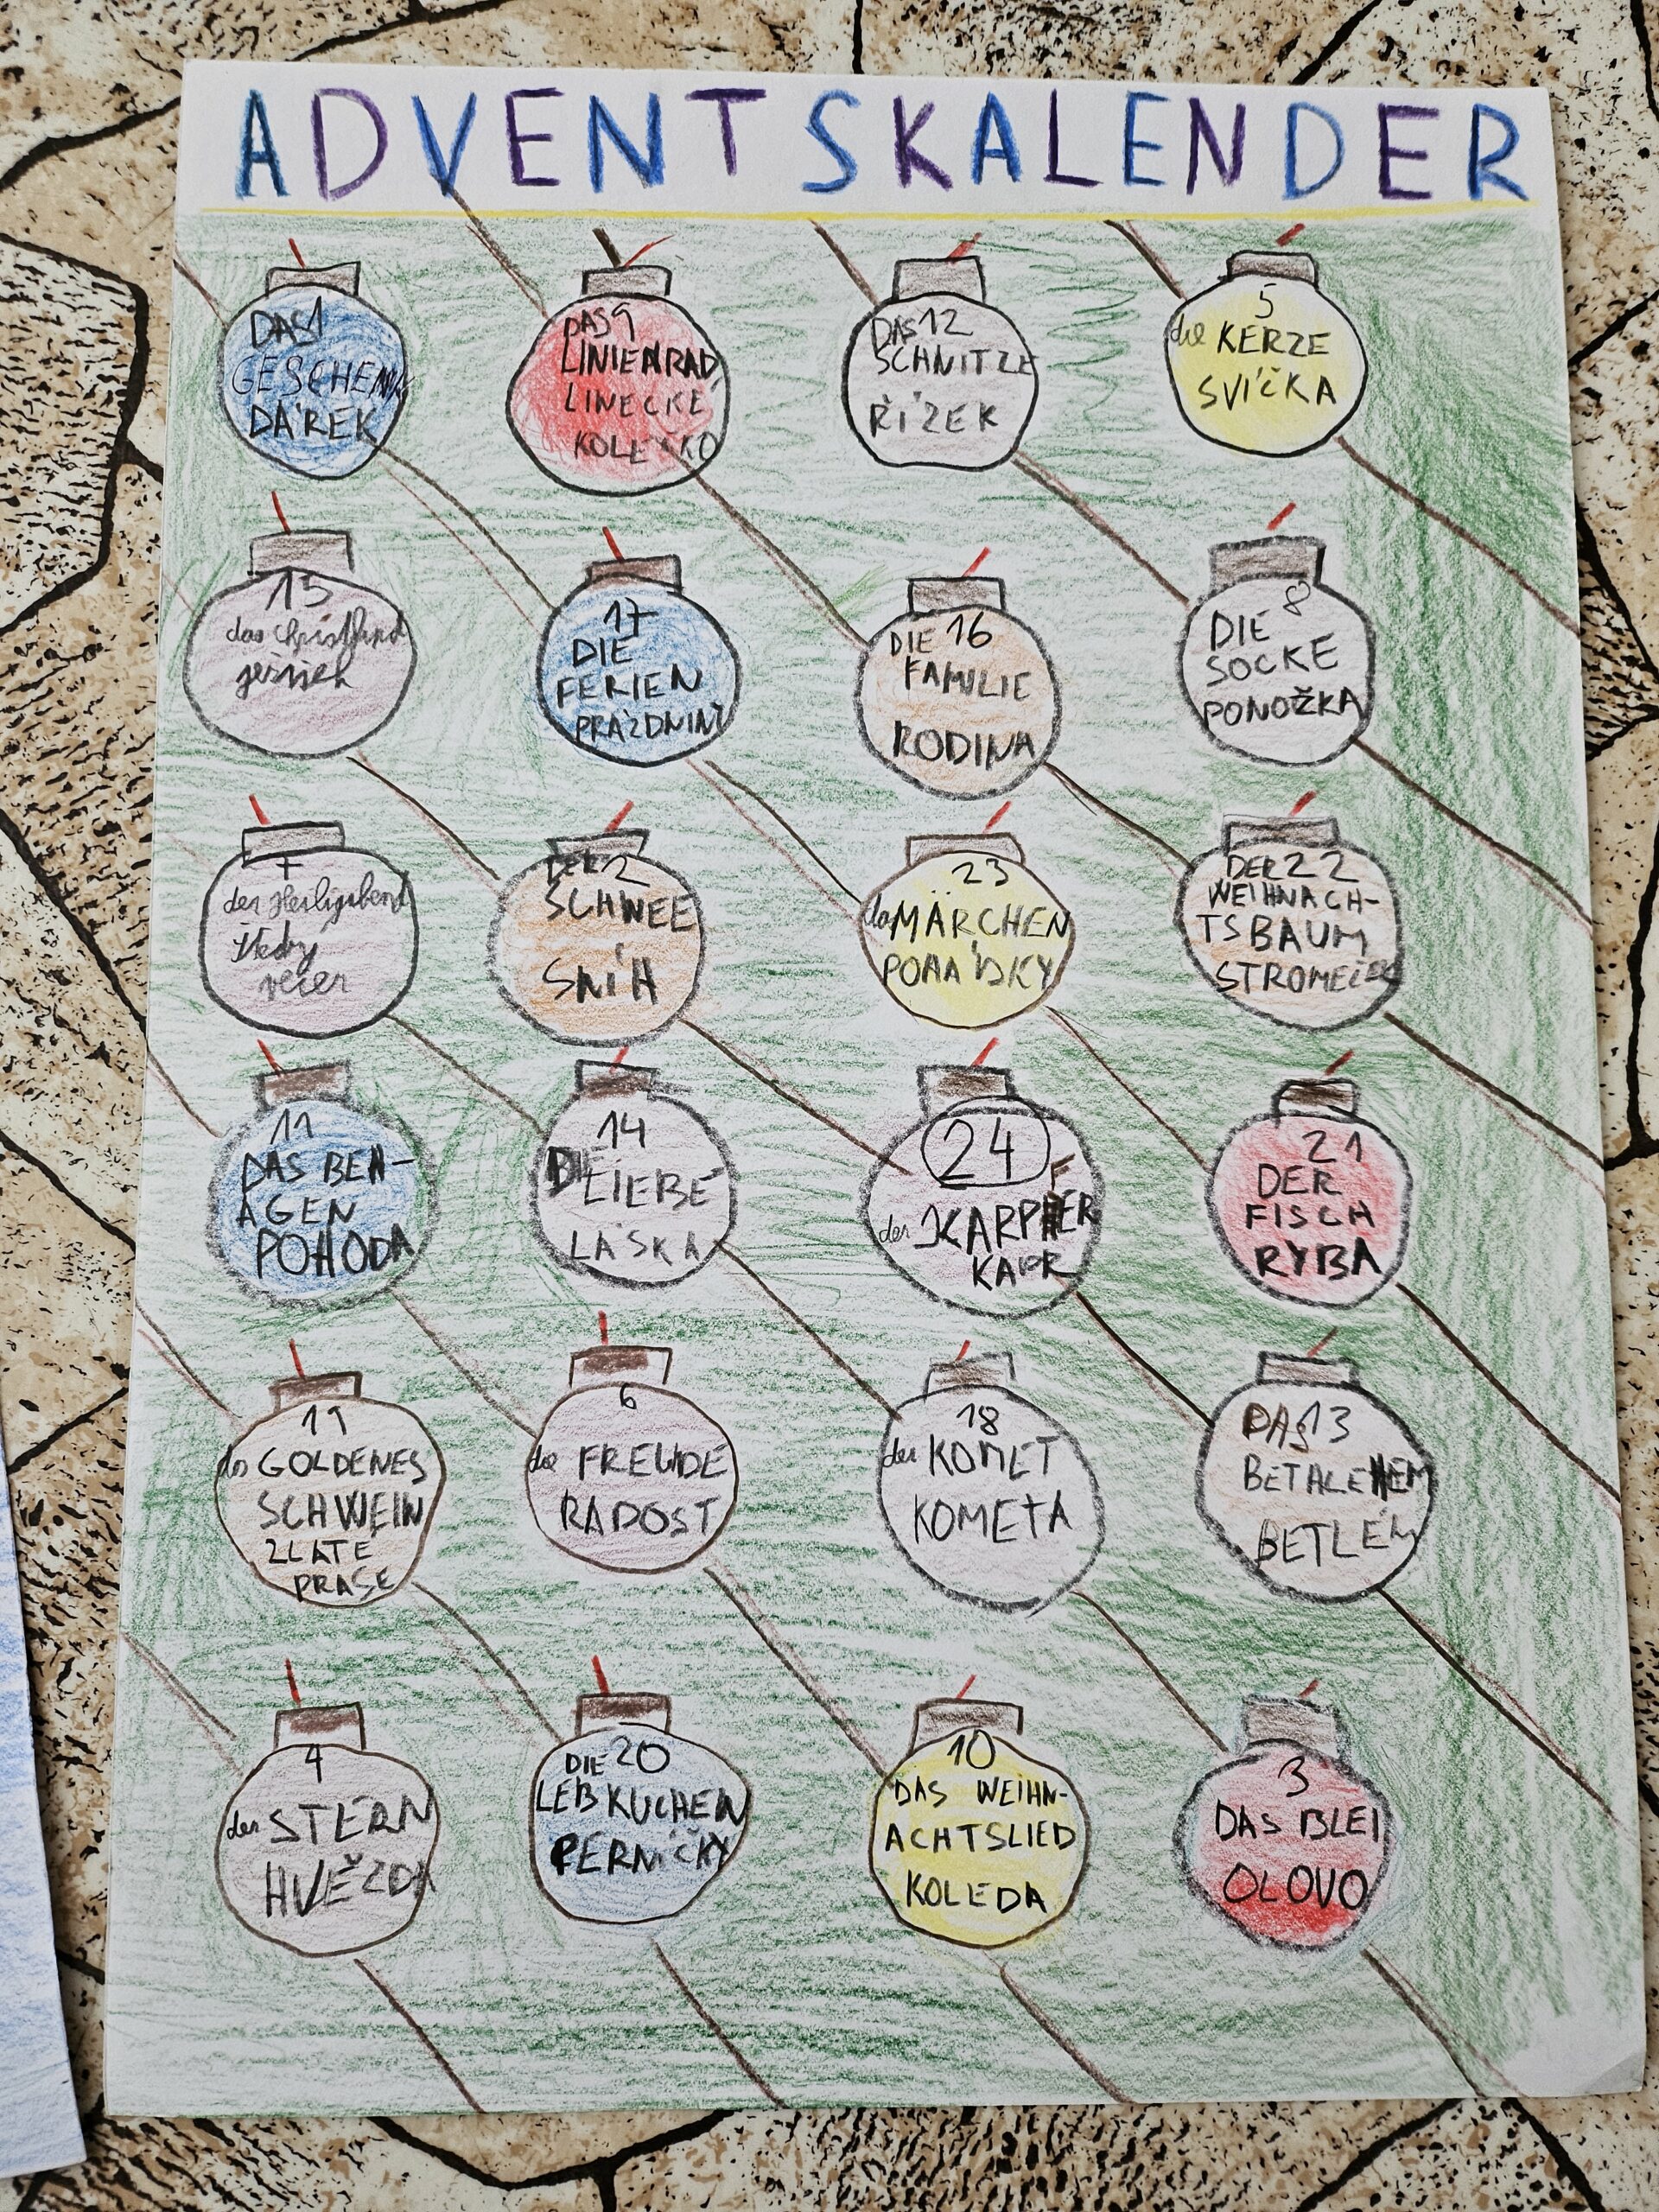 ADVENTSKALENDER
DAS 1
GESCHENK
DÁREK
DAS 9
LINIENRAD
LINECKÉ
KOLEČKO
DAS 12
SCHNITZE
ŘÍZEK
5
die KERZE
SVÍČKA
15
das Christkind
ježíšek
17
DIE
FERIEN
PRÁZDNINY
DIE 16
FAMILIE
RODINA
DIE 8
SOCKE
PONOŽKA
7
der Heiligabend
štědrý
večer
DER 2
SCHNEE
SNÍH
23
das MÄRCHEN
POHÁDKY
DER 22
WEIHNACH-
TSBAUM
STROMEČEK
11
DAS BEH-
AGEN
POHODA
14
DIE LIEBE
LÁSKA
24
der KARPFER
KAPR
21
DER
FISCH
RYBA
19
das GOLDENES
SCHWEIN
ZLATÉ
PRASE
6
die FREUDE
RADOST
18
der KOMET
KOMETA
DAS 13
BETHLEHEM
BETLÉM
4
der STERN
HVĚZDA
DIE 20
LEBKUCHEN
PERNÍČKY
10
DAS WEIHN-
ACHTSLIED
KOLEDA
3
DAS BLEI
OLOVO